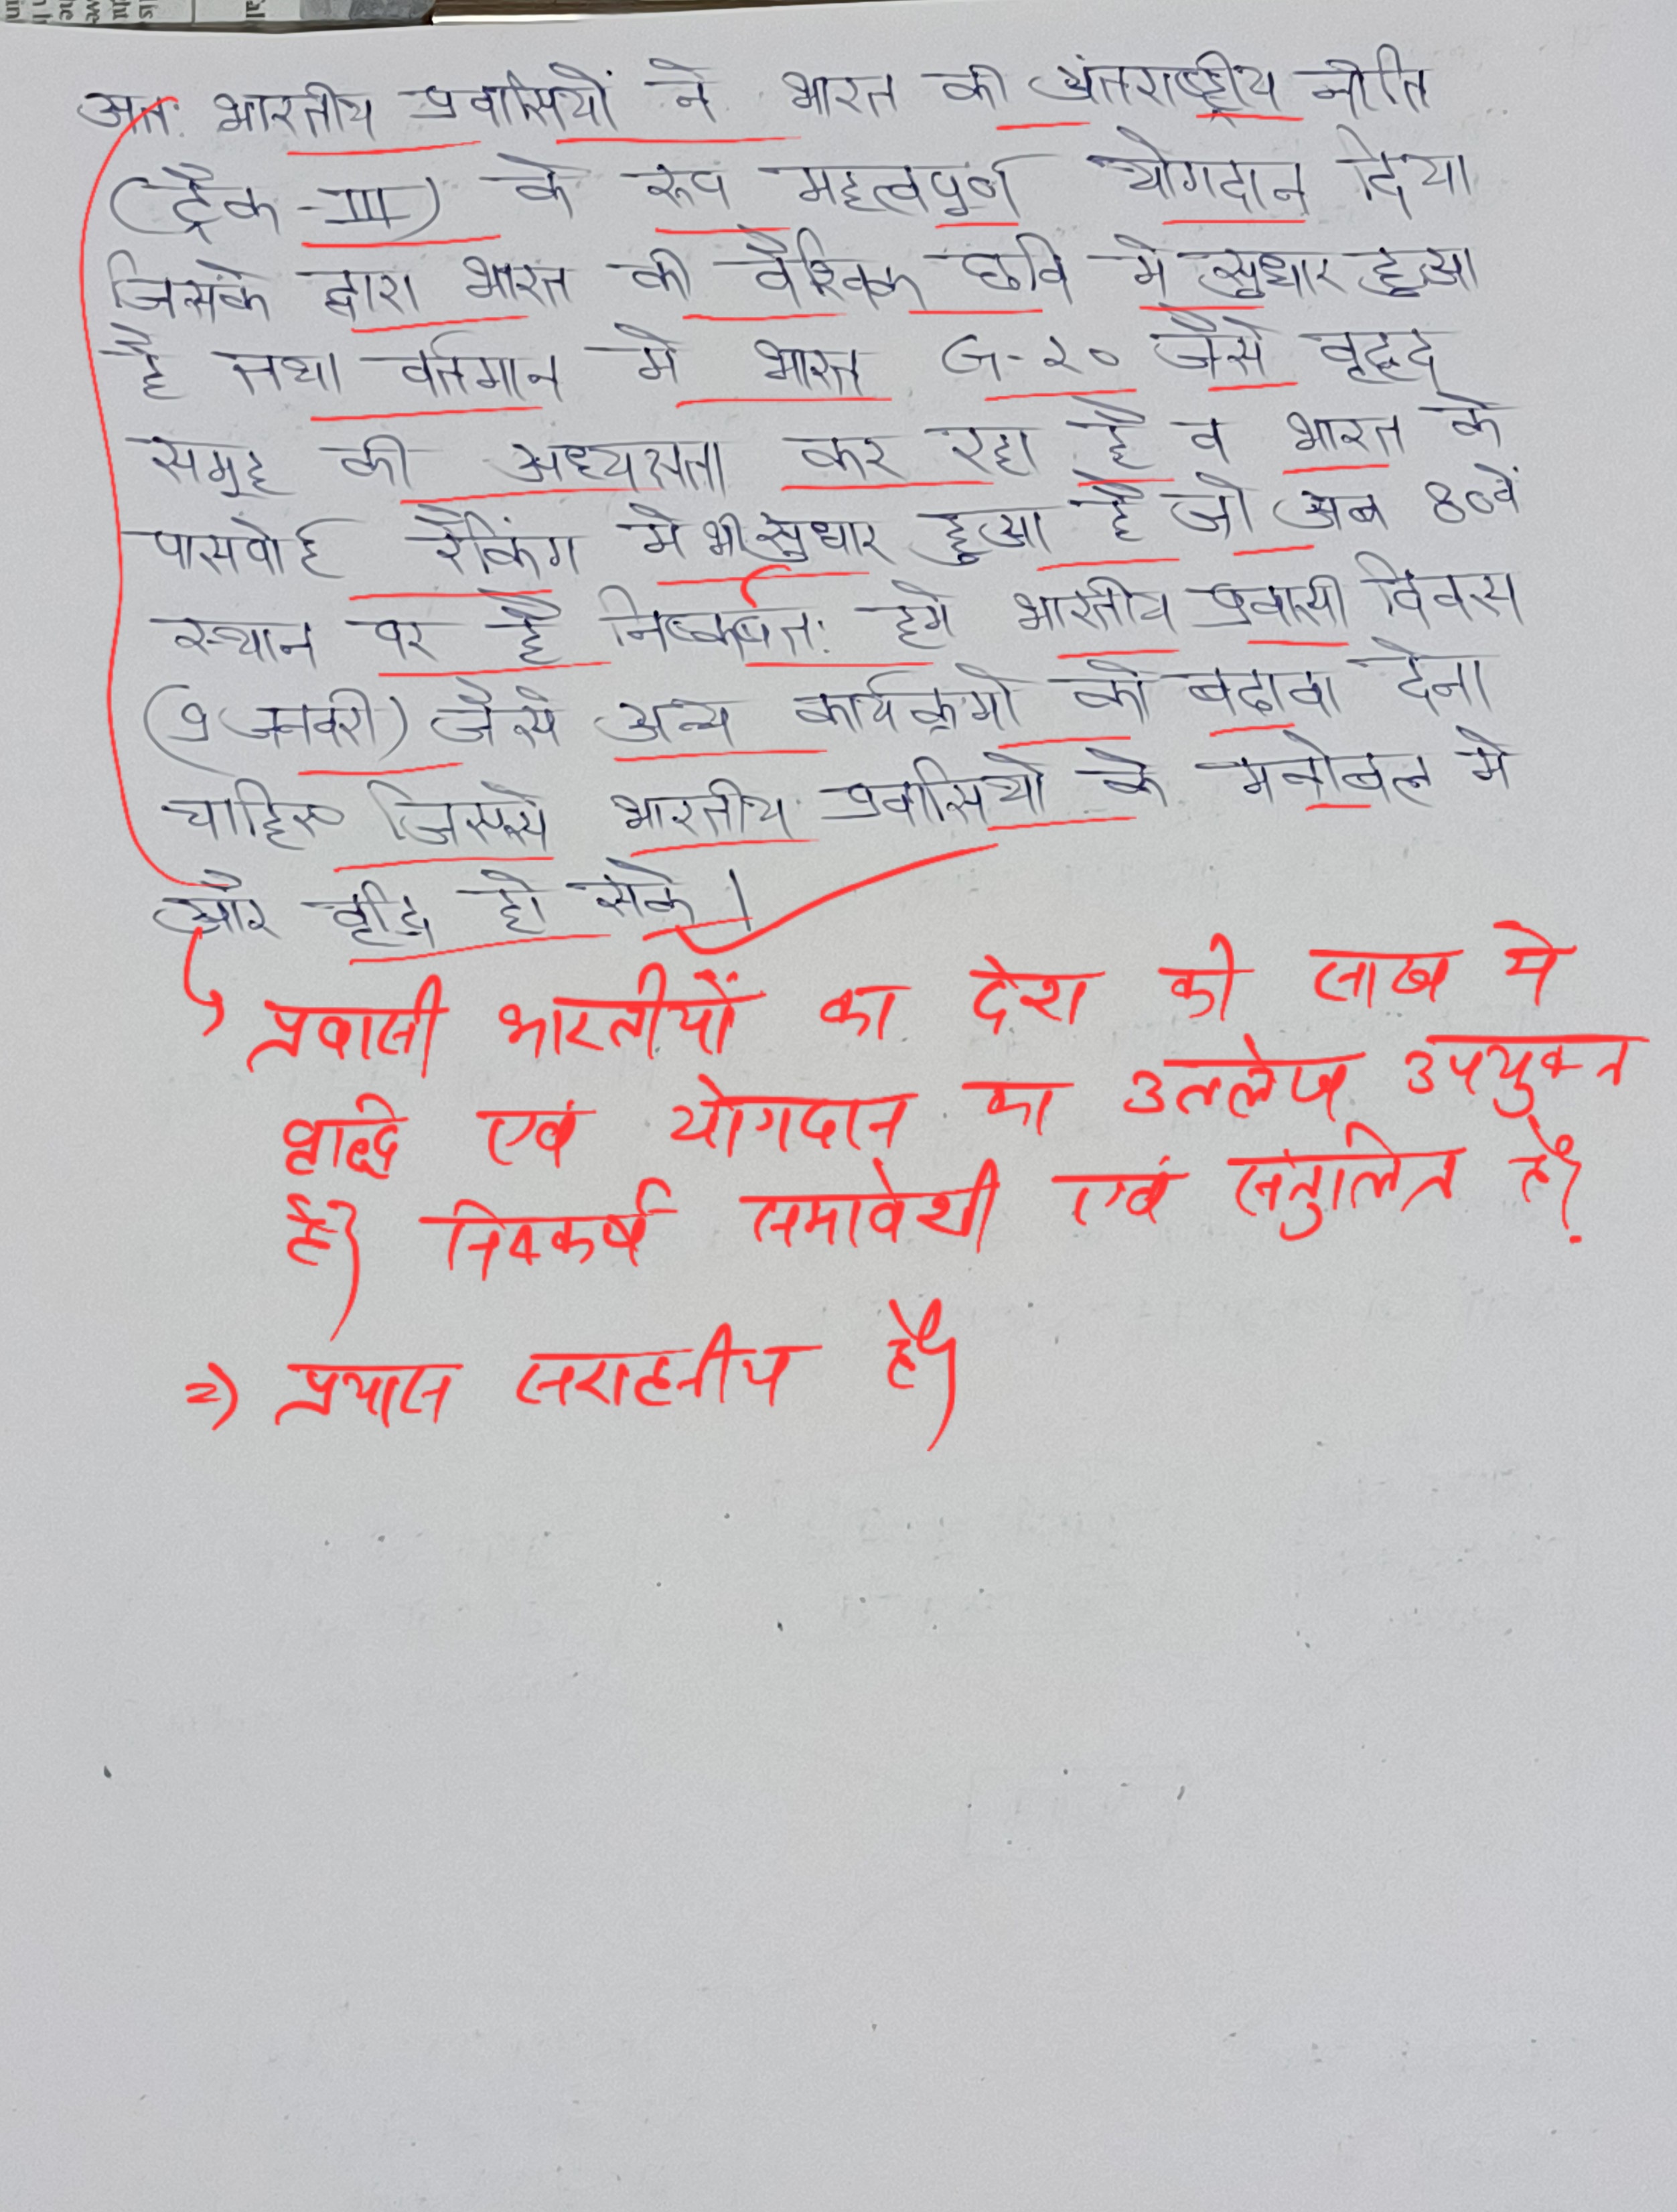 अतः भारतीय प्रवासियों ने भारत की अंतराष्ट्रीय नीति
(ट्रैक-III) के रूप महत्वपूर्ण योगदान दिया
जिसके द्वारा भारत की वैश्विक छवि मे सुधार हुआ
है तथा वर्तमान मे भारत G-२० जैसे वृहद
समूह की अध्यक्षता कर रहा है व भारत के
पासपोर्ट रैंकिंग मे भी सुधार हुआ है जो अब 80वें
स्थान पर है निष्कर्षतः हमे भारतीय प्रवासी दिवस
(9 जनवरी) जैसे अन्य कार्यक्रमो को बढ़ावा देना
चाहिए जिससे भारतीय प्रवासियो के मनोबल मे
और वृद्धि हो सके।
प्रवासी भारतीयों का देश की साख मे
वृद्धि एवं योगदान का उल्लेख उपयुक्त
है। निष्कर्ष समावेशी एवं संतुलित है।
=> प्रयास सराहनीय है।